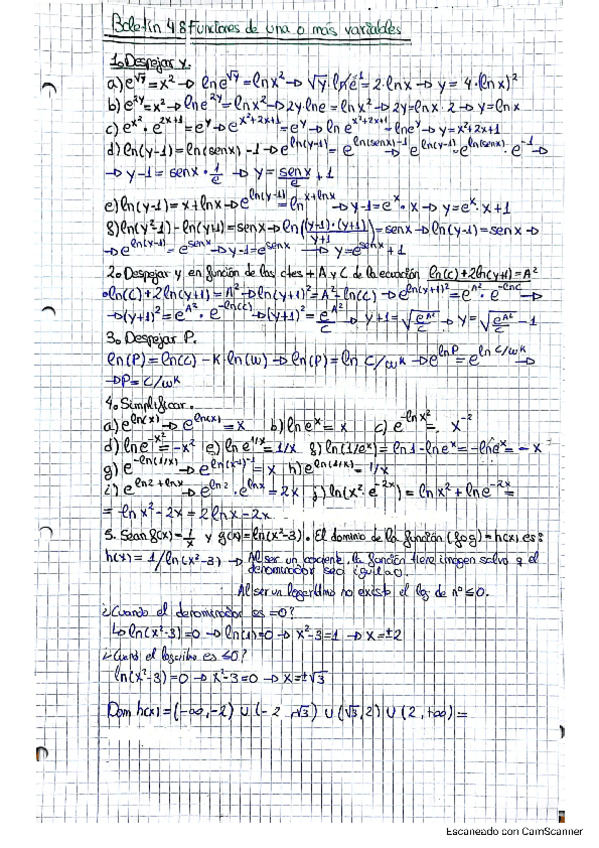 Boletín 4.8 Funciones de una o más variables
1. Despejar y.
a) e^√y = x² → ln e^√y = ln x² → √y · ln e = 2 · ln x → y = 4 · ln x)²
b) e^2y = x² → ln e^2y = ln x² → 2y · ln e = ln x² → 2y = ln x · 2 → y = ln x
c) e^x² · e^2x+1 = e^y → e^x²+2x+1 = e^y → ln e^x²+2x+1 = ln e^y → y = x²+2x+1
d) ln(y-1) = ln(senx) - 1 → e^ln(y-1) = e^ln(senx)-1 → e^ln(y-1) = e^ln(senx) · e^-1 →
→ y-1 = senx · 1/e → y = senx/e + 1
e) ln(y-1) = x + lnx → e^ln(y-1) = ln^x+lnx → y-1 = e^x · x → y = e^x · x + 1
g) ln(y²-1) - ln(y+1) = senx → ln((y-1)·(y+1)/y+1) = senx → ln(y-1) = senx →
→ e^ln(y-1) = e^senx → y-1 = e^senx → y = e^senx + 1
2. Despejar y en función de las ctes + A y C de la ecuación ln(c) + 2ln(y+1) = A²
• ln(c) + 2ln(y+1) = A² → ln(y+1)² = A² - ln(c) → e^ln(y+1)² = e^A² · e^-lnc →
→ (y+1)² = e^A² · e^-ln(c) → (y+1)² = e^A²/c → y+1 = √e^A²/c → y = √e^A²/c - 1
3. Despejar P.
ln(P) = ln(c) - K ln(w) → ln(P) = ln c/w^K → e^lnP = e^ln c/w^K →
→ P = c/w^K
4. Simplificar.
a) e^ln(x) → e^ln(x) = x b) ln e^x = x c) e^-ln x² = x^-2
d) ln e^-x² = -x² e) ln e^1/x = 1/x g) ln(1/e^x) = ln1 - ln e^x = -ln e^x = -x
g) e^-ln(1/x) → e^ln(x^-1)^-1 = x h) e^ln(1/x) = 1/x
i) e^ln2+lnx → e^ln2 · e^lnx = 2x j) ln(x² · e^-2x) = ln x² + ln e^-2x =
= ln x² - 2x = 2 ln x - 2x
5. Sean f(x) = 1/x y g(x) = ln(x²-3). El dominio de la función (f o g) = h(x) es:
h(x) = 1/ln(x²-3) → Al ser un cociente, la función tiene imagen salvo q el
denominador sea igual a 0.
Al ser un logaritmo no existe el log de nº ≤ 0.
¿Cuando el denominador es = 0?
↳ ln(x²-3) = 0 → ln(1) = 0 → x²-3 = 1 → x = ±2
¿Cuand el logaritmo es ≤ 0?
ln(x²-3) = 0 → x²-3 = 0 → x = ±√3
Dom h(x) = (-∞, -2) ∪ (-2, √3) ∪ (√3, 2) ∪ (2, +∞) =
Escaneado con CamScanner